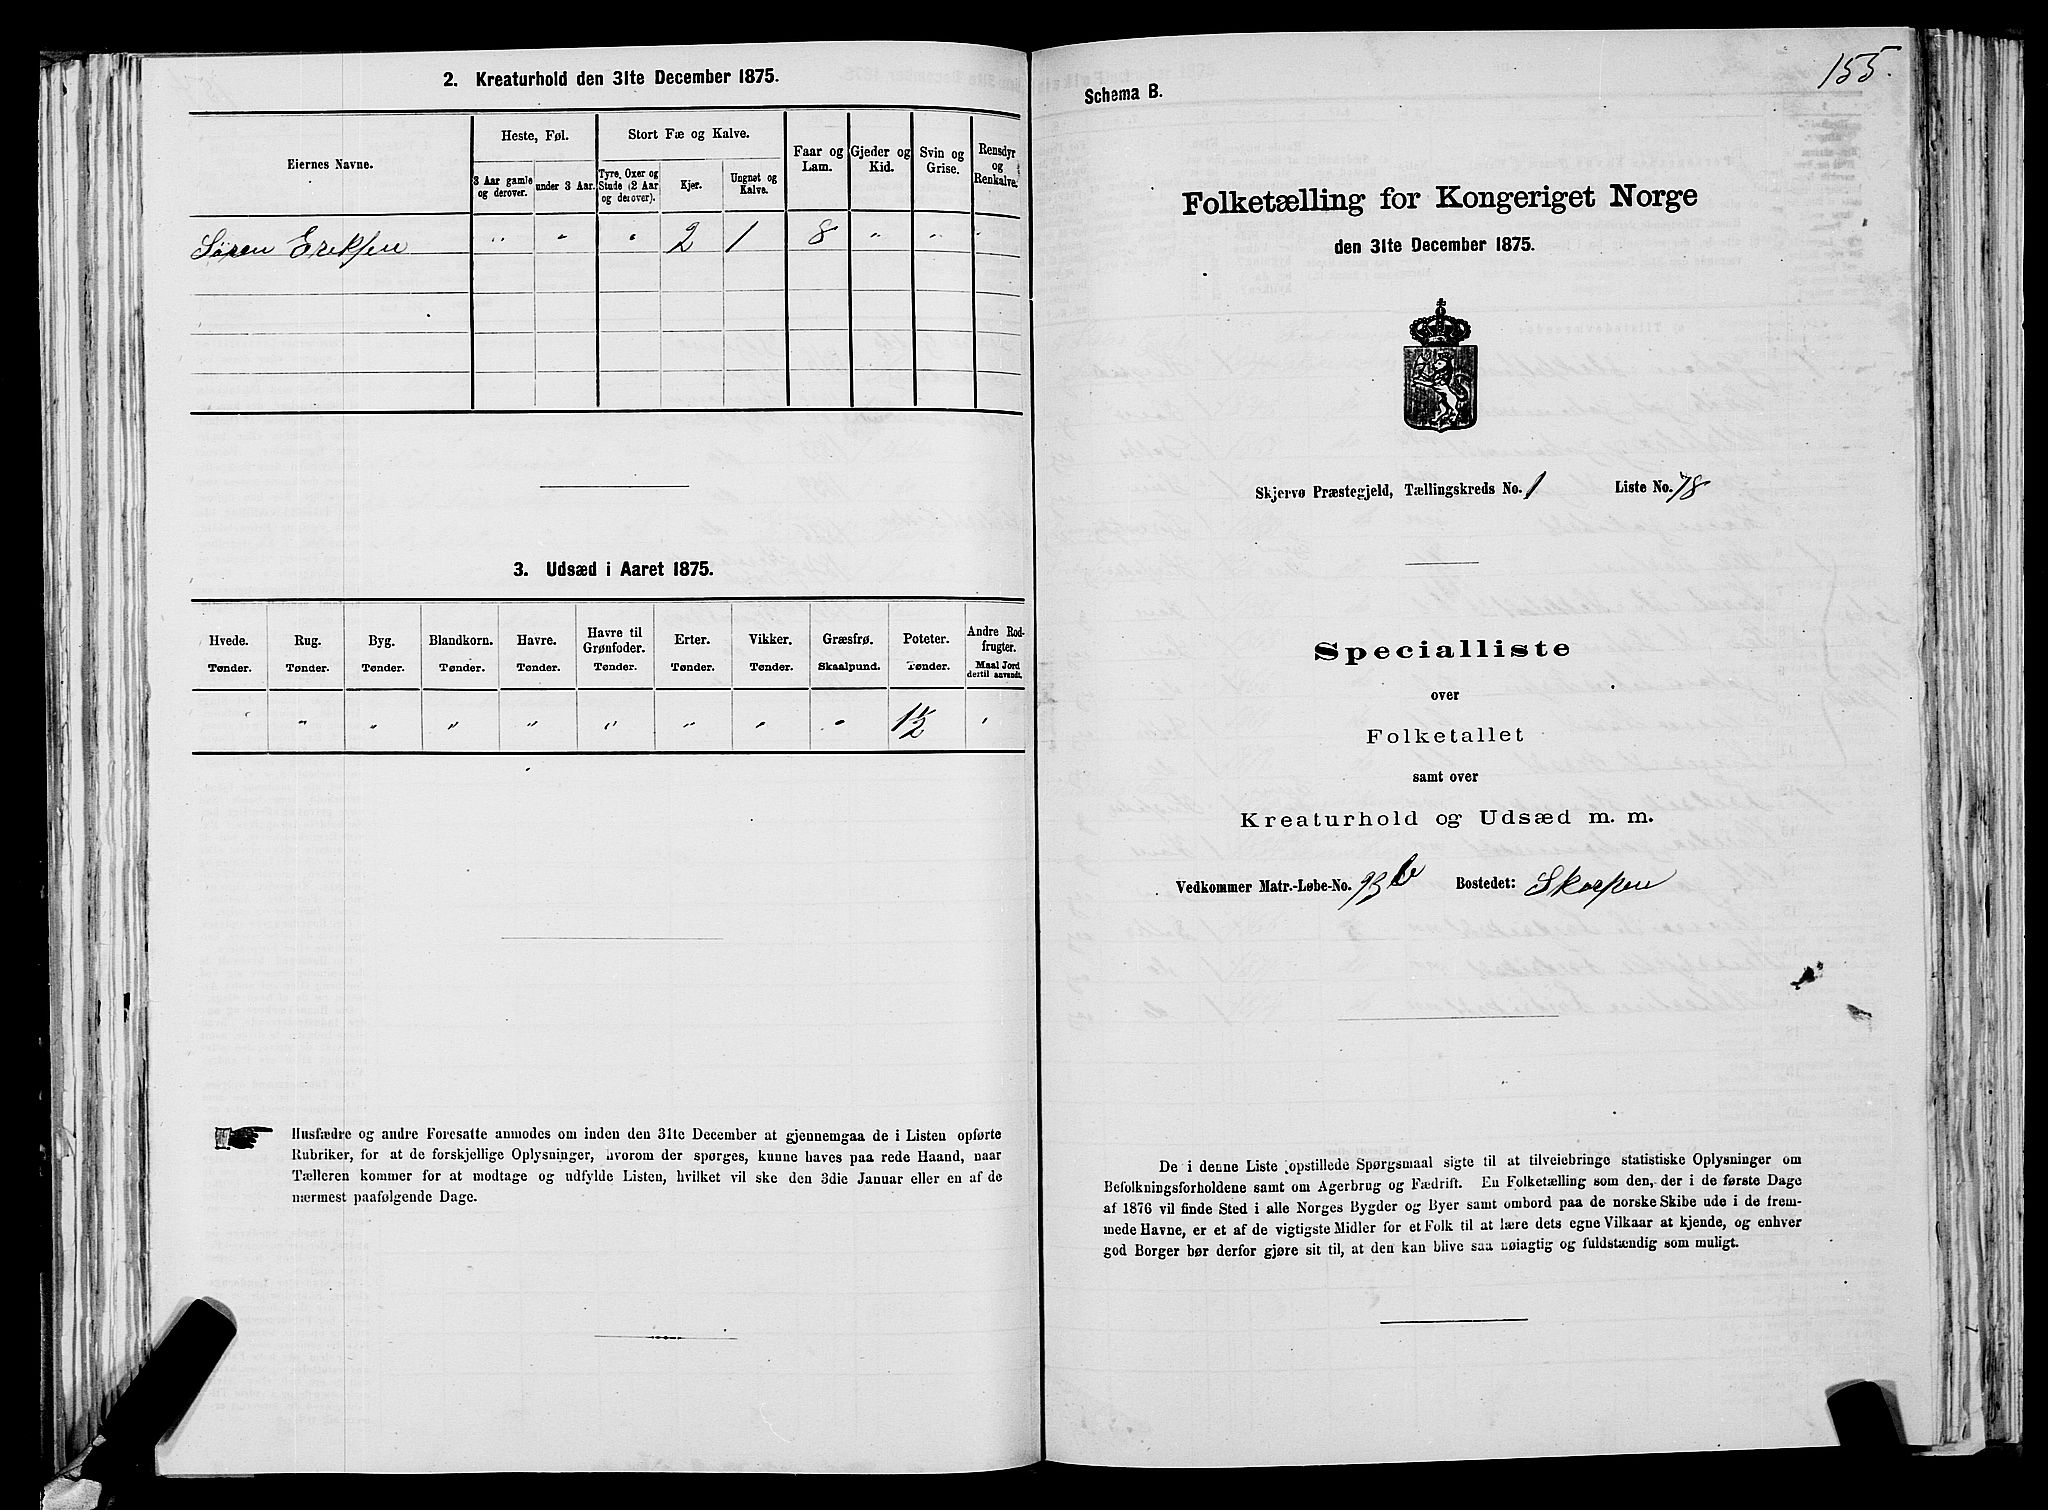 2. Kreaturhold den 31te December 1875.
Eiernes Navne.
Heste, Føl.
3 Aar gamle og derover.
under 3 Aar.
Stort Fæ og Kalve.
Tyre, Oxer og Stude (2 Aar og derover).
Kjer.
Ungnøt og Kalve.
Faar og Lam.
Gjeder og Kid.
Svin og Grise.
Rensdyr og Renkalve.
Søren Eriksen " " " 2 1 8 " " "
3. Udsæd i Aaret 1875.
Hvede. Rug. Byg. Blandkorn. Havre. Havre til Grønfoder. Erter. Vikker. Græsfrø. Poteter. Andre Rodfrugter.
Tønder. Tønder. Tønder. Tønder. Tønder. Tønder. Tønder. Tønder. Skaalpund. Tønder. Maal Jord dertil anvendt.
" " " " " " " " " 1½ "
Husfædre og andre Foresatte anmodes om inden den 31te December at gjennemgaa de i Listen opførte
Rubriker, for at de forskjellige Oplysninger, hvorom der spørges, kunne haves paa rede Haand, naar
Tælleren kommer for at modtage og udfylde Listen, hvilket vil ske den 3die Januar eller en af de
nærmest paafølgende Dage.
155.
Schema B.
Folketælling for Kongeriget Norge
den 31te December 1875.
Skjervø Præstegjeld, Tællingskreds No. 1 Liste No. 78
Specialliste
over
Folketallet
samt over
Kreaturhold og Udsæd m. m.
Vedkommer Matr.-Løbe-No. 93b Bostedet: Skorpen
De i denne Liste opstillede Spørgsmaal sigte til at tilveiebringe statistiske Oplysninger om
Befolkningsforholdene samt om Agerbrug og Fædrift. En Folketælling som den, der i de første Dage
af 1876 vil finde Sted i alle Norges Bygder og Byer samt ombord paa de norske Skibe ude i de frem-
mede Havne, er et af de vigtigste Midler for et Folk til at lære dets egne Vilkaar at kjende, og enhver
god Borger bør derfor gjøre sit til, at den kan blive saa nøiagtig og fuldstændig som muligt.